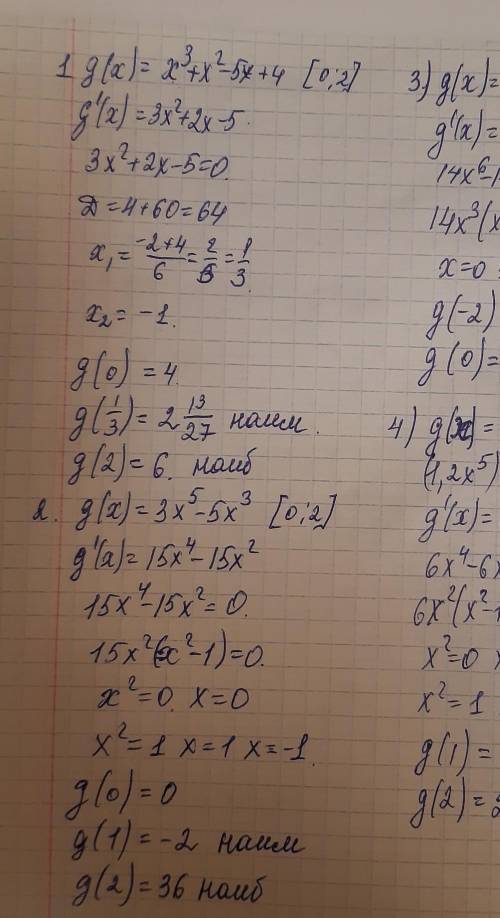 1 g(x) = x³+x²-5x+4 [0;2]
g'(x) = 3x²+2x-5.
3x²+2x-5=0.
D = 4+60 = 64
x₁ = (-2+4)/6 = 2/6 = 1/3.
x₂ = -1.
g(0) = 4.
g(1/3) = 2 13/27 наим.
g(2) = 6. наиб
2. g(x) = 3x⁵-5x³ [0;2]
g'(x) = 15x⁴-15x²
15x⁴-15x²=0.
15x²(x²-1)=0.
x²=0. x=0
x²=1 x=1 x=-1.
g(0) = 0
g(1) = -2 наим
g(2) = 36 наиб
3.) g(x) =
g'(x) =
14x⁶-1
14x³(x
x=0
g(-2)
g(0) =
4) g(x) =
(1,2x⁵)
g'(x) =
6x⁴-6x
6x²(x²-1
x²=0 x
x²=1
g(1) =
g(2) = 2